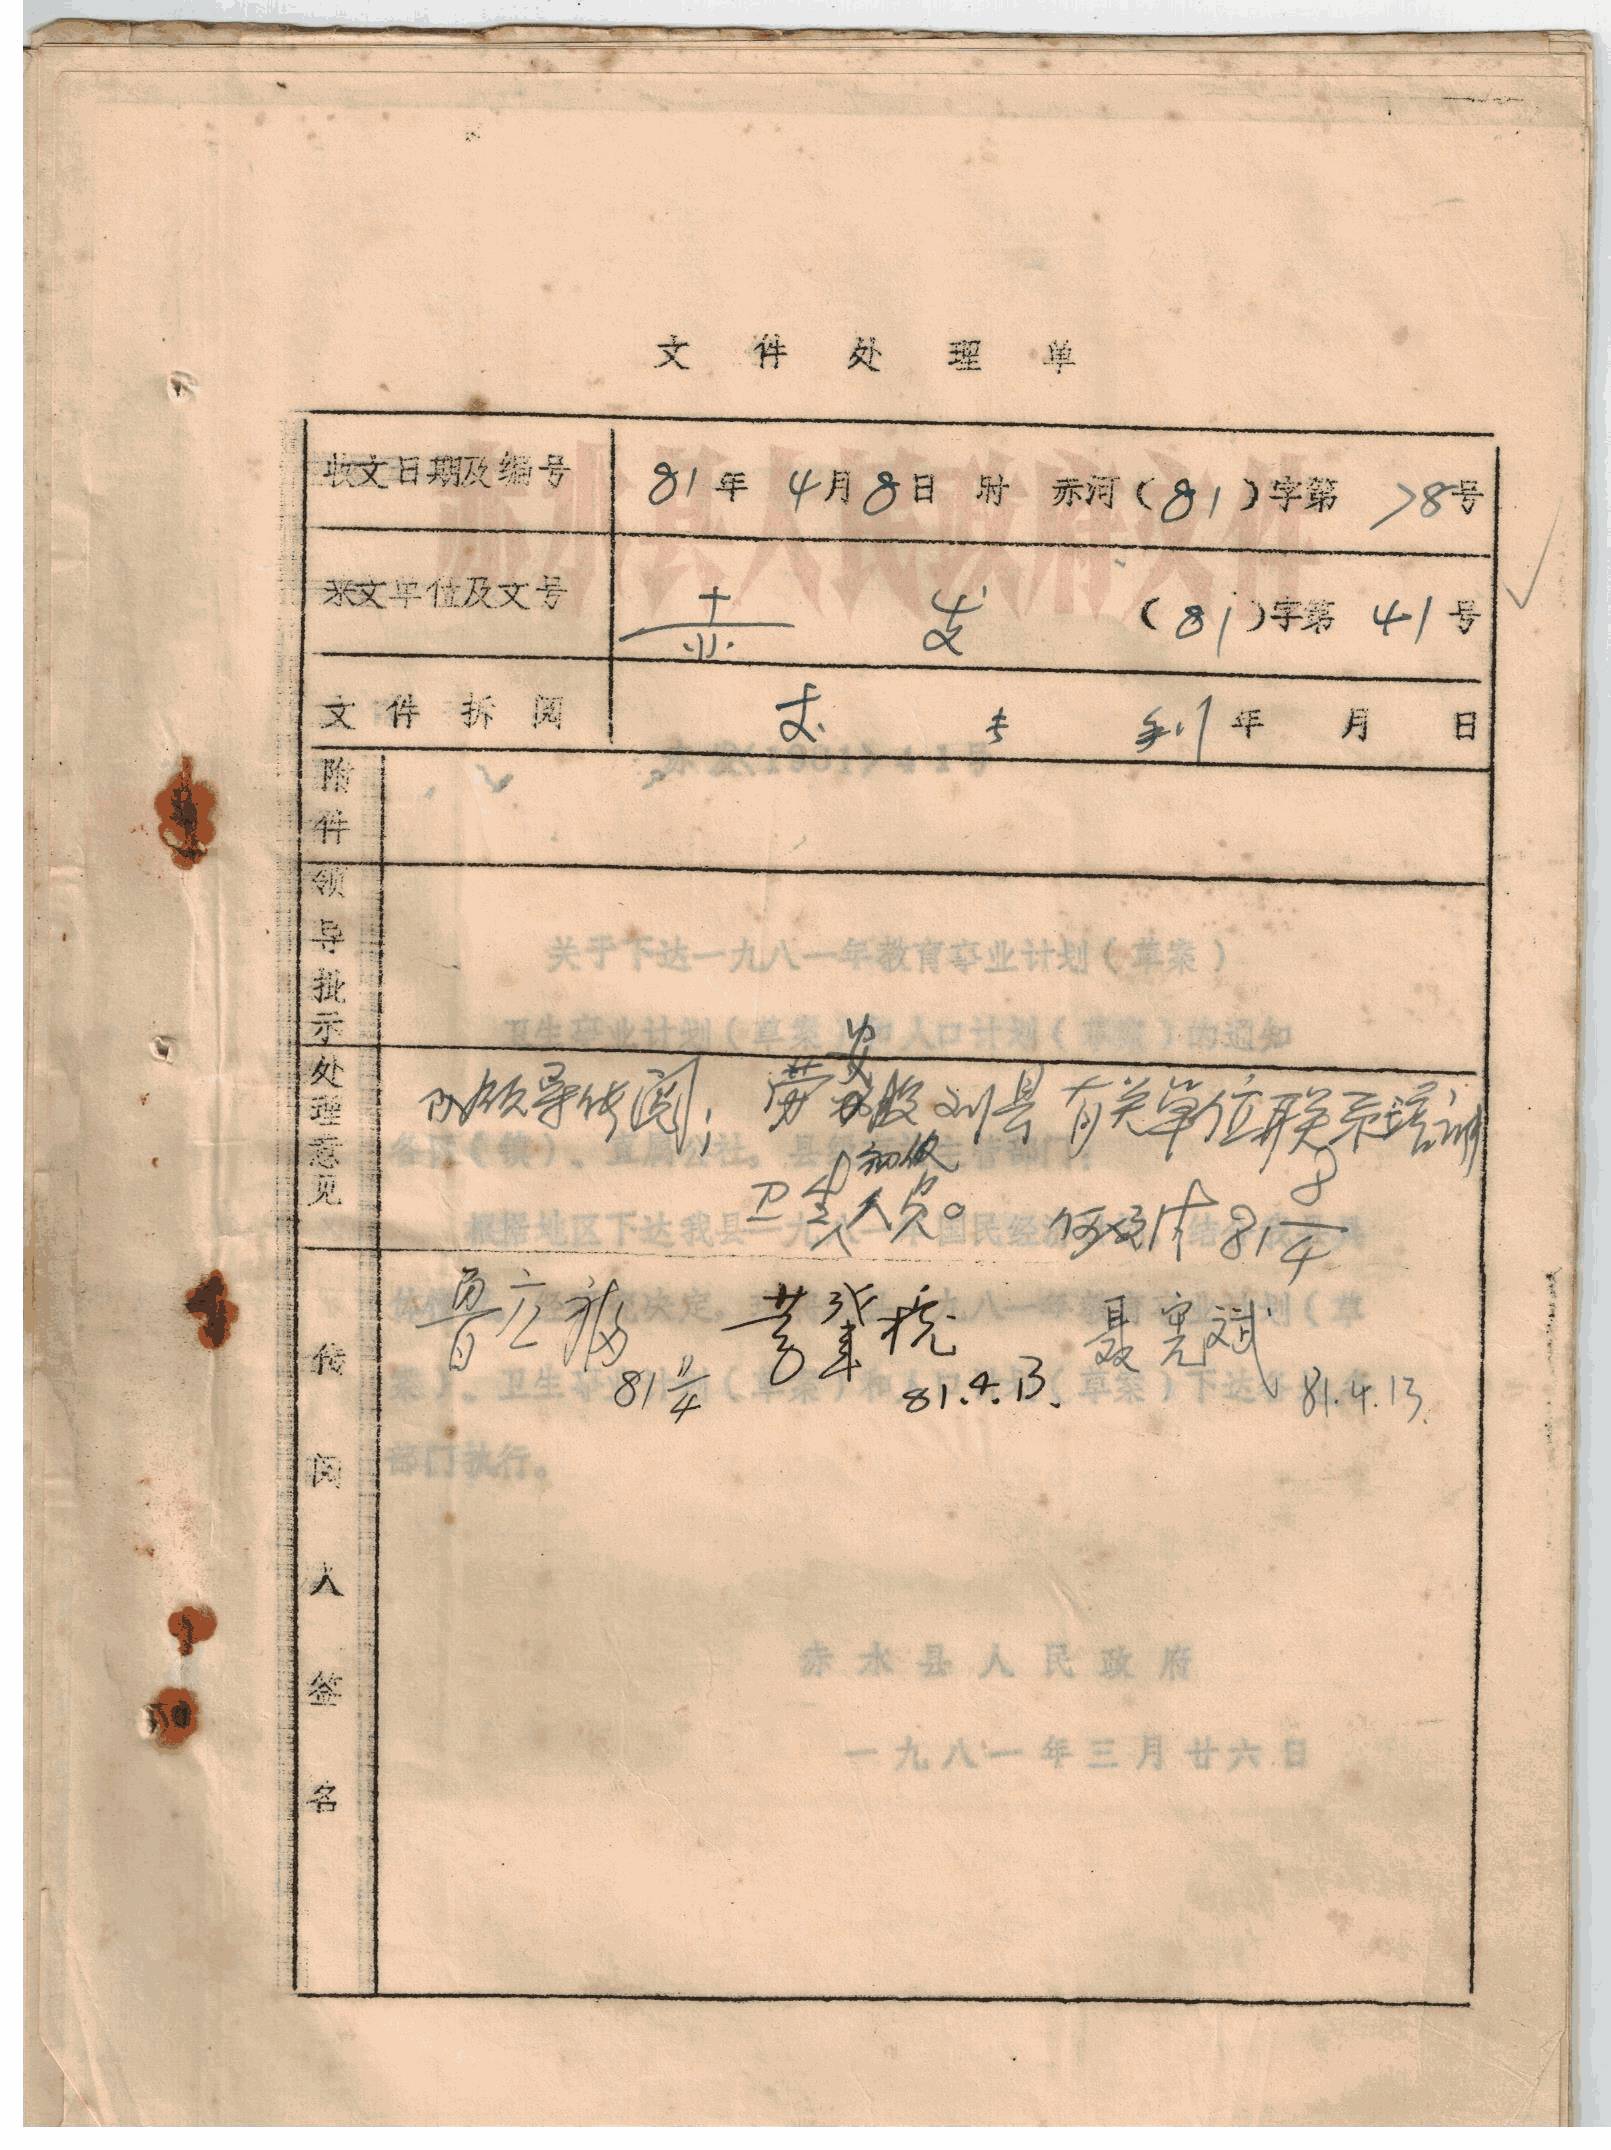 文件处理单
收文日期及编号 81年 4月8日 附 赤河(81)字第 78号
来文单位及文号 赤 发 (81)字第 41号
文件拆阅 年 月 日
附件
赤发(1981)41号
领导批示
关于下达一九八一年教育事业计划(草案)
卫生事业计划(草案)和人口计划(草案)的通知
处理意见
领导传阅; 劳 股 县有关单位联系培训
初级
卫生人员。 81 8/4
各区(镇)、直属公社。县
根据地区下达我县一九八一年国民经济
决定。 九八一年教育事业计划(草
案)、卫生事业计划(草案)和人口计划(草案)下达
部门执行。
传阅人签名
81 11/4 81.4.13. 聂宪斌 81.4.13.
赤水县人民政府
一九八一年三月廿六日